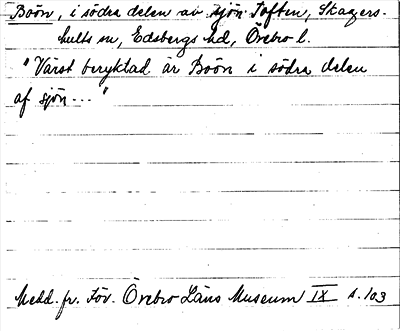 Boön, i södra delen av sjön Toften, Skagers-
hults sn, Edsbergs hd, Örebro l.
"Värst beryktad är Boön i södra delen
af sjön..."
Medd. fr. För. Örebro Läns Museum IX s. 103